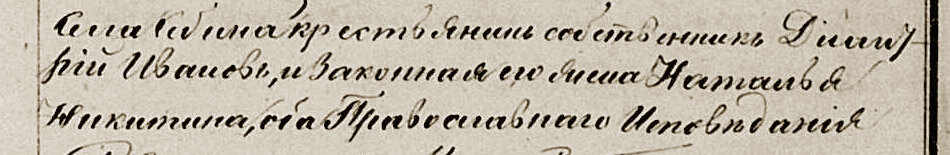 села Сѣкина крестьянинъ собственникъ Дими-
трій Ивановъ, и законная его жена Наталья
Никитина, оба Православнаго Исповѣданія